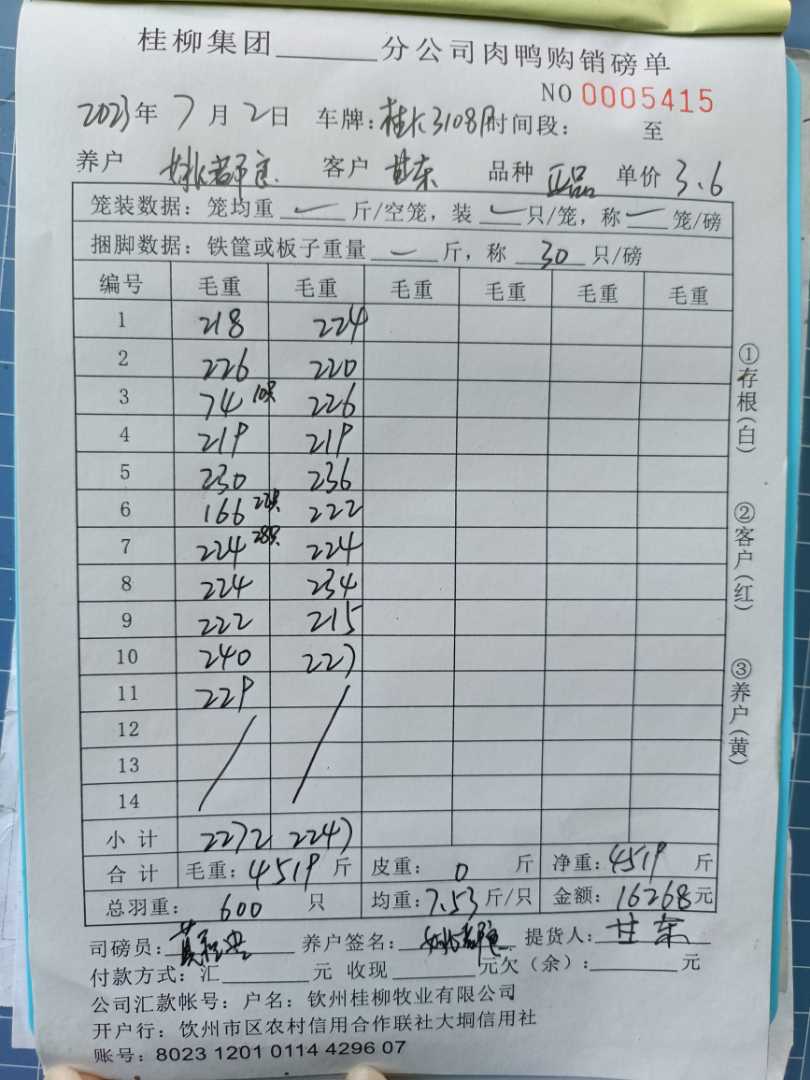 桂柳集团______分公司肉鸭购销磅单
NO 0005415
2023年 7月2日 车牌: 桂 3108 时间段: 至
养户 姚都 客户 甘东 品种 正品 单价 3.6
笼装数据: 笼均重 — 斤/空笼, 装 — 只/笼, 称 — 笼/磅
捆脚数据: 铁筐或板子重量 — 斤, 称 30 只/磅
编号 毛重 毛重 毛重 毛重 毛重 毛重
1 218 224
2 226 220
3 74 10只 226
4 219 219
5 230 236
6 166 22只 222
7 224 28只 224
8 224 234
9 222 215
10 240 227
11 229
12
13
14
小计 2272 2247
合计 毛重: 4519 斤 皮重: 0 斤 净重: 4519 斤
总羽重: 600 只 均重: 7.53 斤/只 金额: 16268元
司磅员: 黄 养户签名: 姚都 提货人: 甘东
付款方式: 汇______元 收现______元欠（余）:______元
公司汇款帐号: 户名: 钦州桂柳牧业有限公司
开户行: 饮州市区农村信用合作联社大垌信用社
账号: 8023 1201 0114 4296 07
①存根(白)
②客户(红)
③养户(黄)